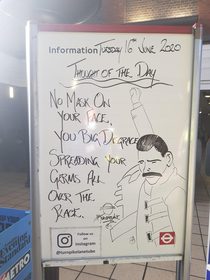 Information TUESDAY 16 JUNE 2020
THOUGHT OF THE DAY
NO MASK ON
YOUR FACE,
YOU BIG DISGRACE
SPREADING YOUR
GERMS ALL
OVER THE
PLACE.
Follow us
on
Instagram
@turnpikelanetube
METRO